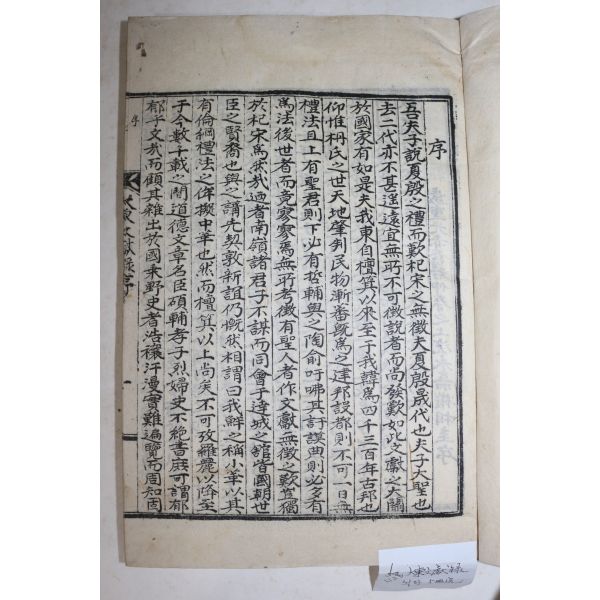 序
吾夫子說夏殷之禮而歎杞宋之無徵夫夏殷晟代也夫子大聖也
去二代亦不甚遙遠宜無所不可徵說者而尚發歎如此文獻之大關
於國家有如是夫我東自檀箕以來至于我韓爲四千三百年古邦也
仰惟枬氏之世天地肇判民物漸番旣爲之建邦設都則不可一日無
禮法且上有聖君則下必有哲輔與之陶俞吁咈其訏謨典則必多有
爲法後世者而竟寥寥焉無所考徵有聖人者作文獻無徵之歎豈獨
於杞宋爲然哉迺者南嶺諸君子不謀而同會于達城之舘皆國朝世
臣之賢裔也與之講先契敦新誼仍慨然相謂曰我鮮之稱小華以其
有倫綱禮法之侔擬中華也然而檀箕以上尚矣不可攷羅麗以降至
于今數千載之間道德文章名臣碩輔孝子烈婦史不絶書庶可謂郁
郁乎文哉而顧其雜出於國乘野史者浩穰汗漫實難遍覽而周知固
大東文獻錄序
一